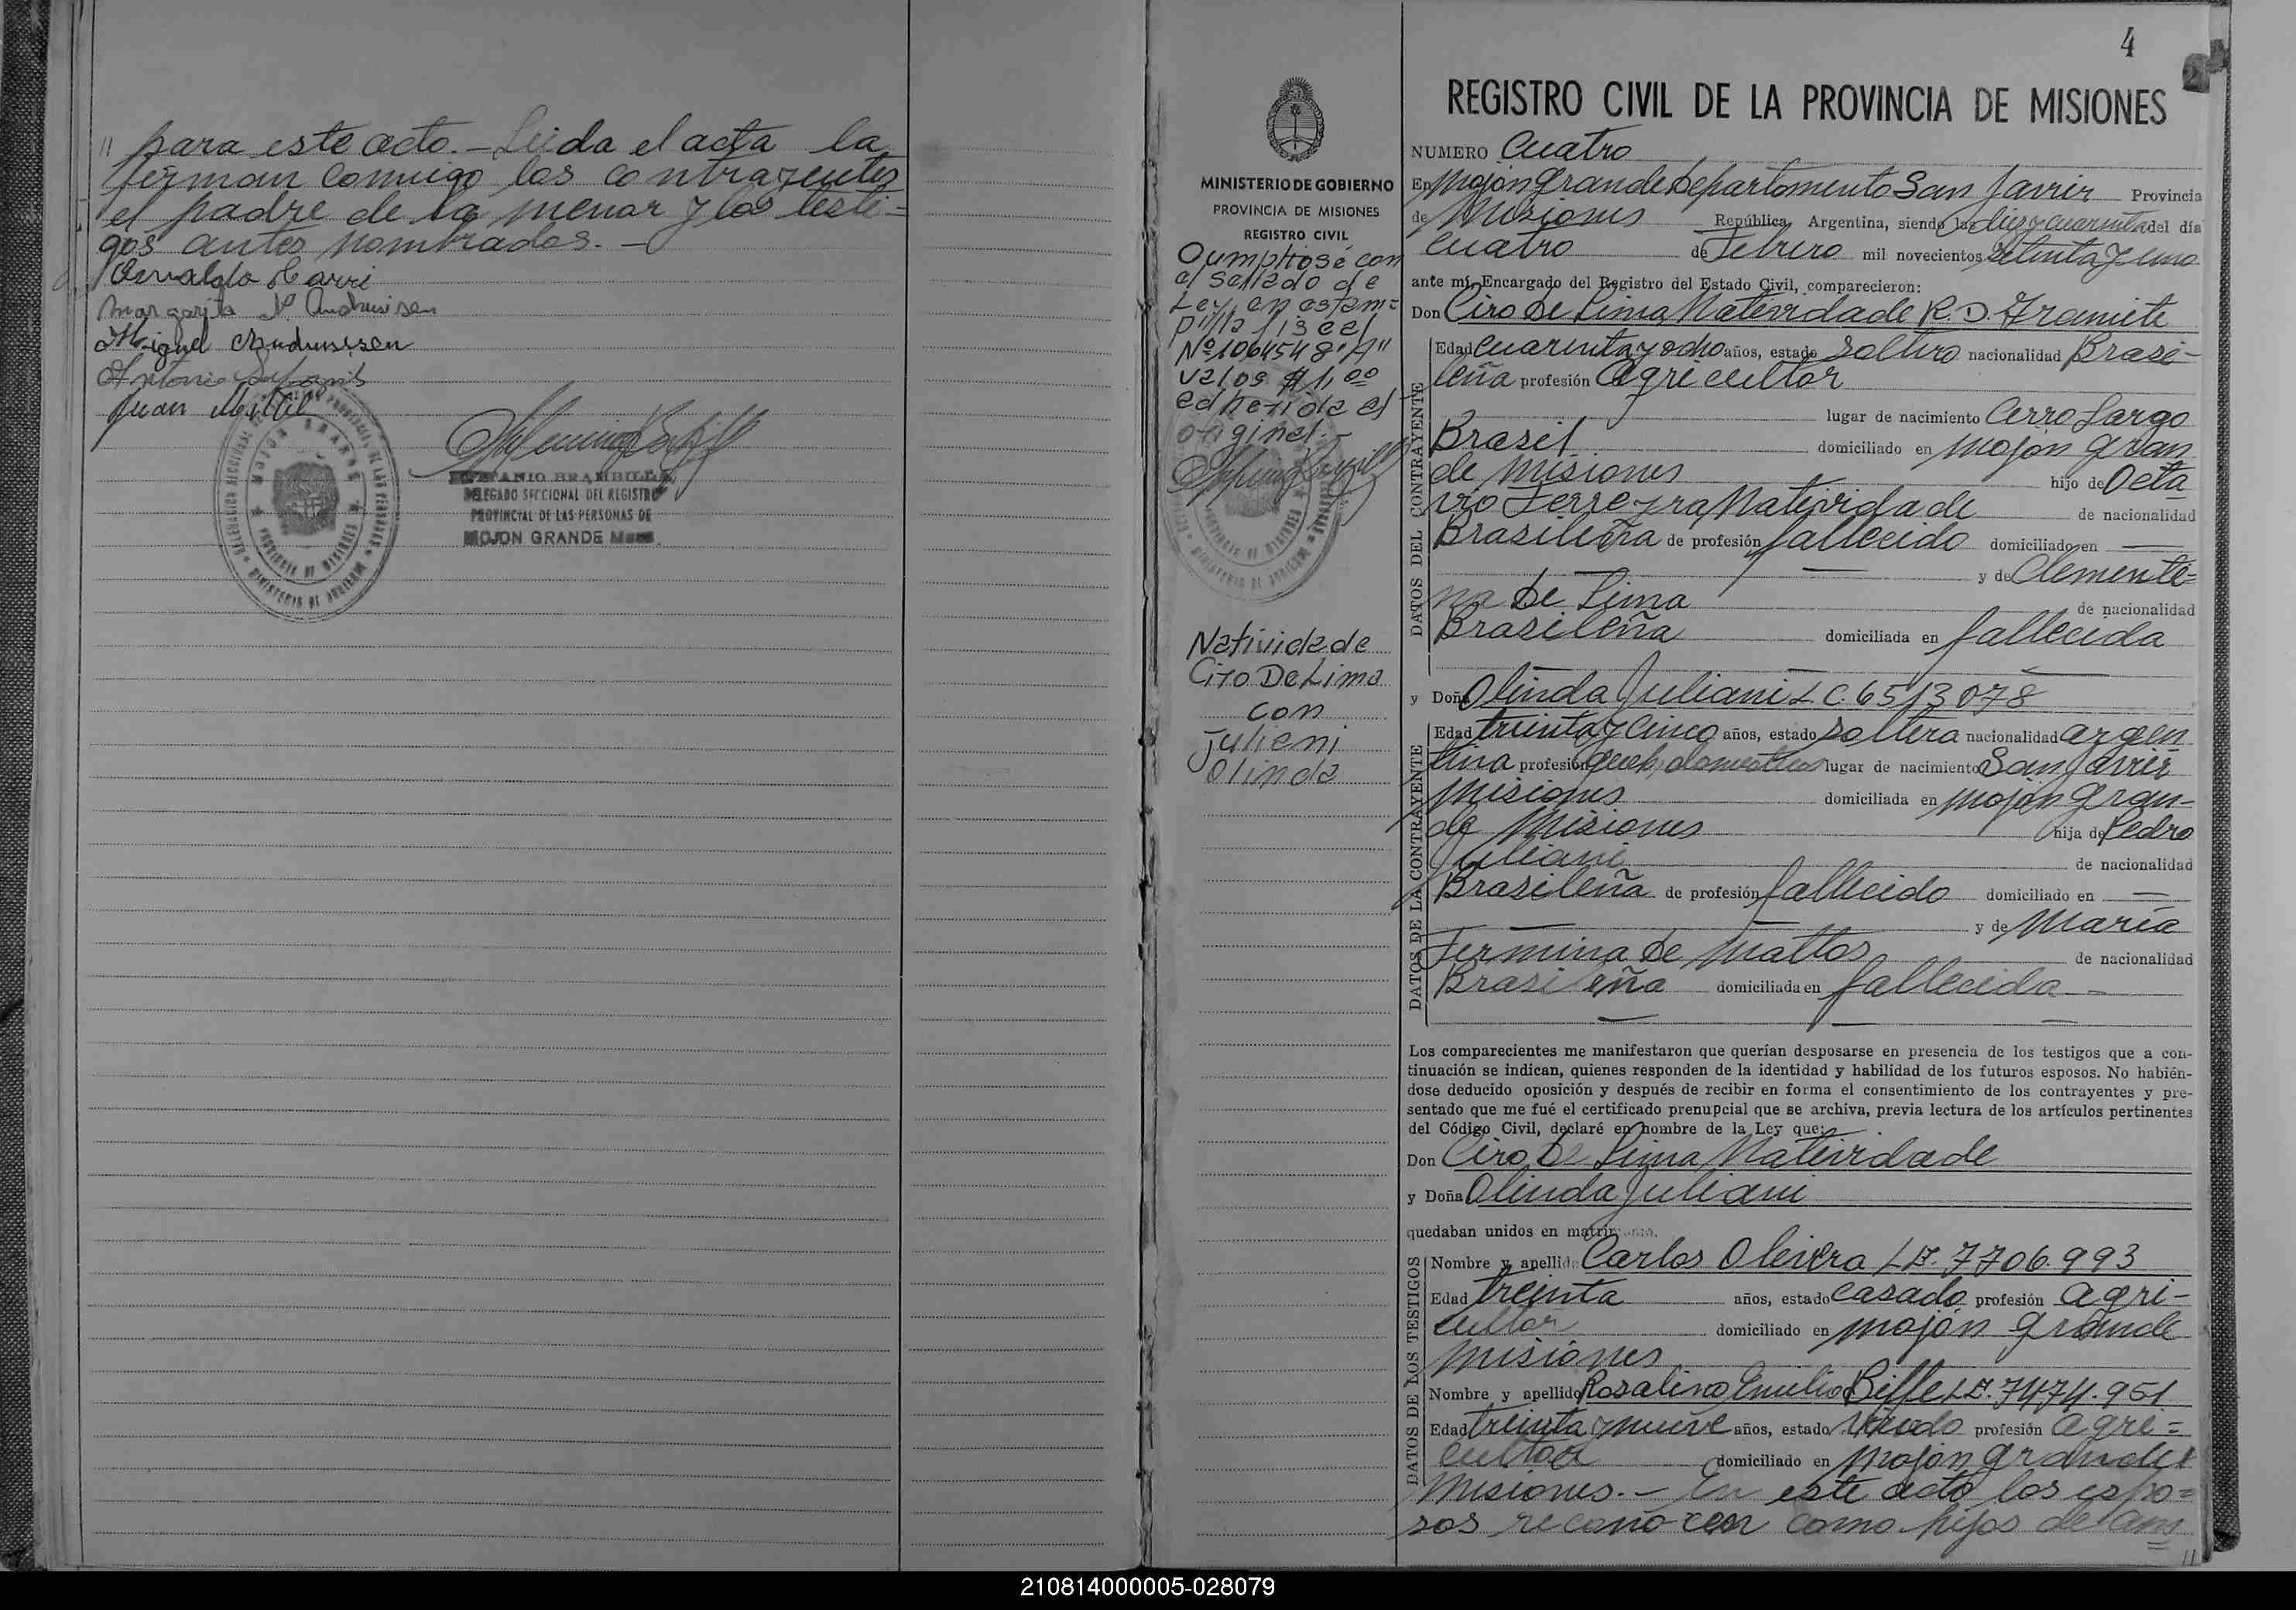 " para este acto. - Leida el acta la
firman conmigo los contrayentes
el padre de la menor y los testi=
gos antes nombrados. -
Osvaldo Carri
Margarita N. Andrusisen
Miguel Andrusisen
Antonio
Juan
MOJON GRANDE
PROVINCIA DE MISIONES
MINISTERIO DE GOBIERNO
BRAMBILLA
DELEGADO SECCIONAL DEL REGISTRO
PROVINCIAL DE LAS PERSONAS DE
MOJON GRANDE
MINISTERIO DE GOBIERNO
PROVINCIA DE MISIONES
REGISTRO CIVIL
Cumpliose con
el sellado de
Ley en estam=
pilla fiscal
Nº 1064548 "A"
valor $ 1,00
adherida al
original.-
Natividade
Ciro De Lima
con
Juliani
Olinda
4
REGISTRO CIVIL DE LA PROVINCIA DE MISIONES
NUMERO Cuatro
En Mojón Grande Departamento San Javier Provincia
de Misiones República Argentina, siendo las diez y cuarenta del día
cuatro de Febrero mil novecientos setenta y uno
ante mí, Encargado del Registro del Estado Civil, comparecieron:
Don Ciro De Lima Natividade R.D. Tramite
DATOS DEL CONTRAYENTE
Edad cuarenta y ocho años, estado soltero nacionalidad Brasi-
leña profesión agricultor
lugar de nacimiento Cerro Largo
Brasil domiciliado en Mojón Gran
de Misiones hijo de Octa
vio Ferreyra Natividade de nacionalidad
Brasileña de profesión fallecido domiciliado en —
— y de Clemente=
na De Lima de nacionalidad
Brasileña domiciliada en fallecida
y Doña Olinda Juliani L.C. 6513078
DATOS DE LA CONTRAYENTE
Edad treinta y cinco años, estado soltera nacionalidad argen
tina profesión queh. domesticos lugar de nacimiento San Javier
Misiones domiciliada en Mojón Gran-
de Misiones hija de Pedro
Juliani de nacionalidad
Brasileña de profesión fallecido domiciliado en —
— y de María
Fermina De Mattos de nacionalidad
Brasileña domiciliada en fallecida —
Los comparecientes me manifestaron que querían desposarse en presencia de los testigos que a con-
tinuación se indican, quienes responden de la identidad y habilidad de los futuros esposos. No habién-
dose deducido oposición y después de recibir en forma el consentimiento de los contrayentes y pre-
sentado que me fué el certificado prenupcial que se archiva, previa lectura de los artículos pertinentes
del Código Civil, declaré en nombre de la Ley que:
Don Ciro De Lima Natividade
y Doña Olinda Juliani
quedaban unidos en matrimonio.
DATOS DE LOS TESTIGOS
Nombre y apellido Carlos Oleivera L.E. 7706.993
Edad treinta años, estado casado profesión agri-
cultor domiciliado en Mojón Grande
Misiones
Nombre y apellido Rosalino Emilio Biffe L.E. 7474.951
Edad treinta y nueve años, estado viudo profesión agri=
cultor domiciliado en Mojón Grande
Misiones. - En este acto los espo=
sos reconocen como hijos de am
= "
210814000005-028079